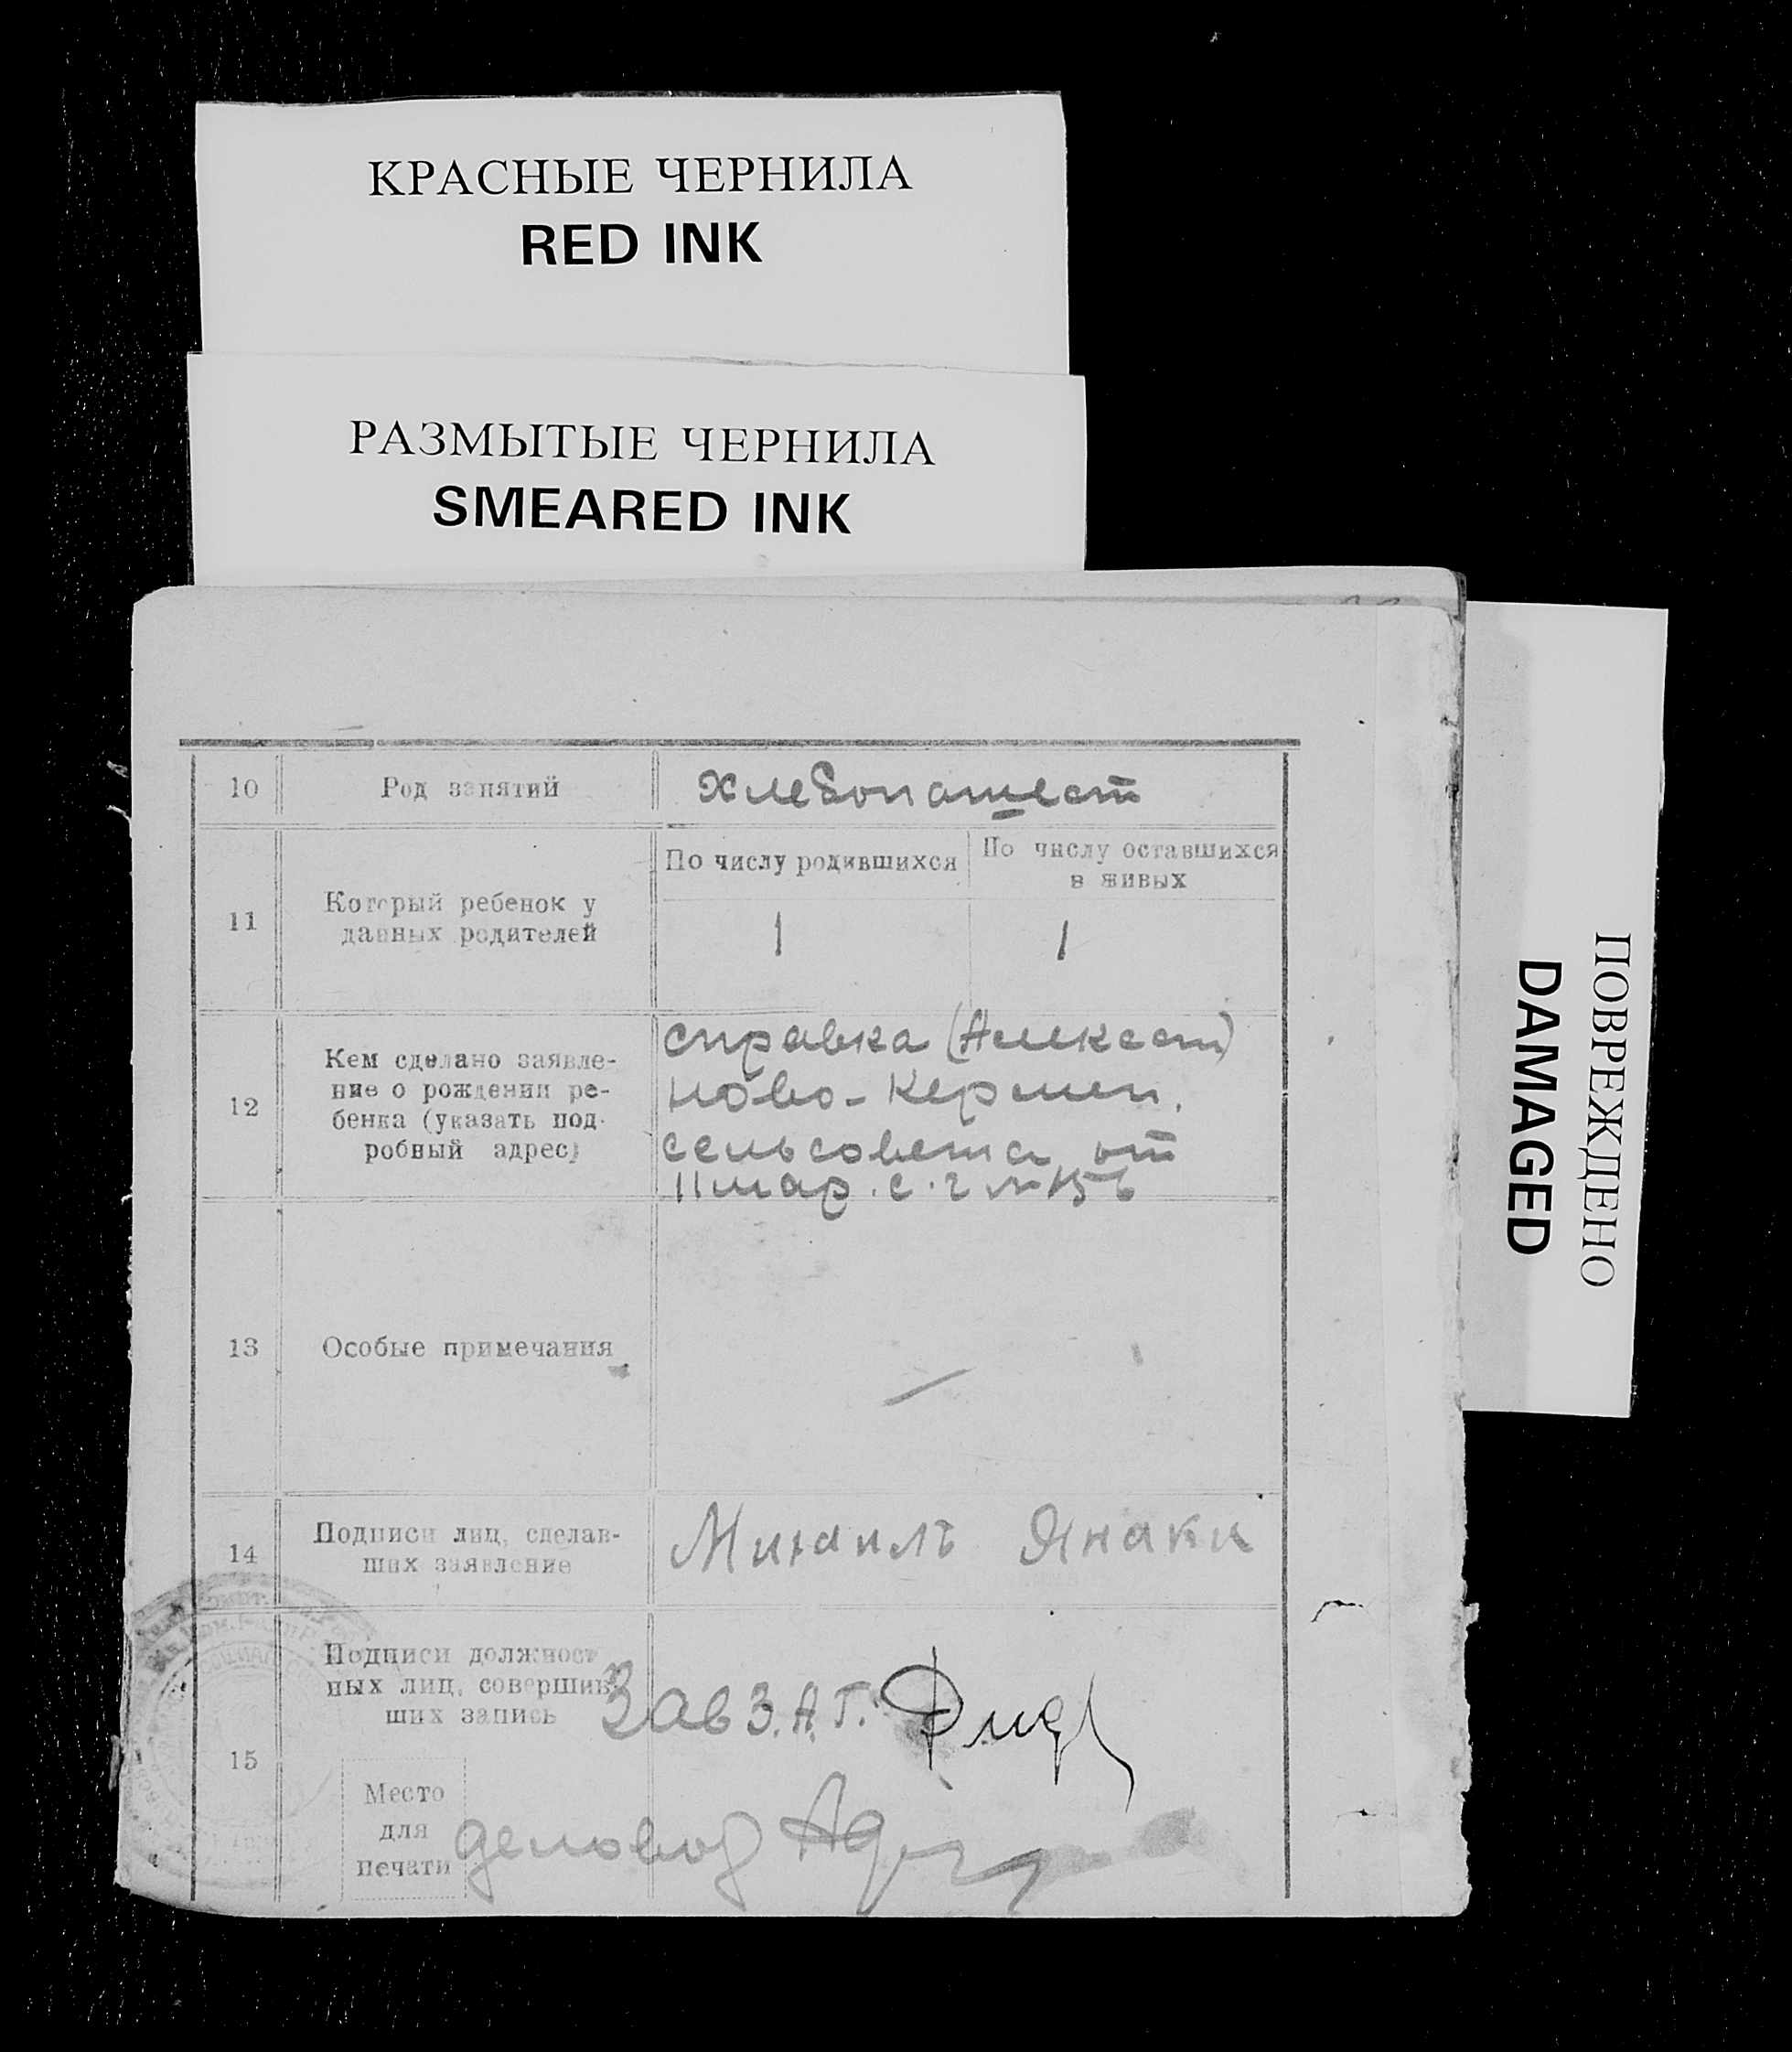 КРАСНЫЕ ЧЕРНИЛА
RED INK
РАЗМЫТЫЕ ЧЕРНИЛА
SMEARED INK
ПОВРЕЖДЕНО
DAMAGED
10 Род занятий
хлебопашест
11
Который ребенок у
данных родителей
По числу родившихся
По числу оставшихся
в живых
1 1
12
Кем сделано заявле-
ние о рождении ре-
бенка (указать под-
робный адрес)
справка
Ново-Кермен.
сельсовета от
11 мар. с. г
13 Особые примечания
14
Подписи лиц, сделав-
ших заявление
Михаилъ Янаки
15
Подписи должност
ных лиц, совершив-
ших запись
Зав З.А.Г.
Место
для
печати
деловод